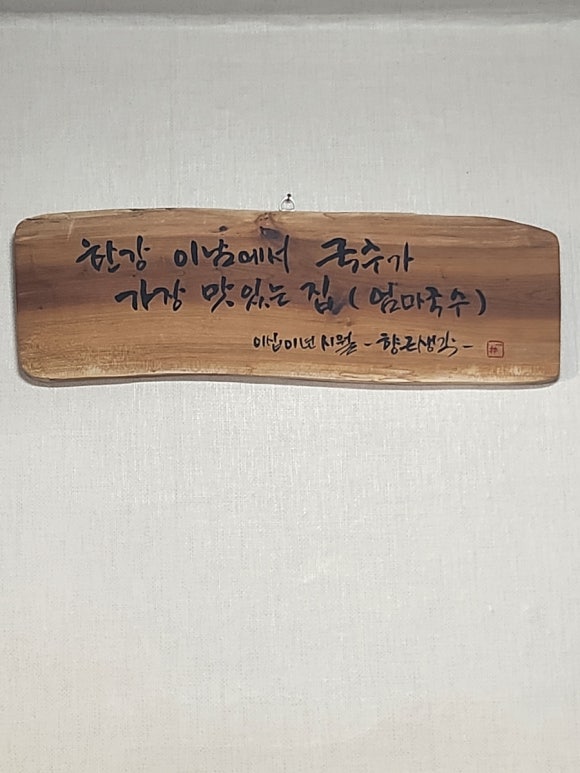 한강 이남에서 국수가
가장 맛있는 집 (엄마국수)
이십이년 시월 - 향근생각 -